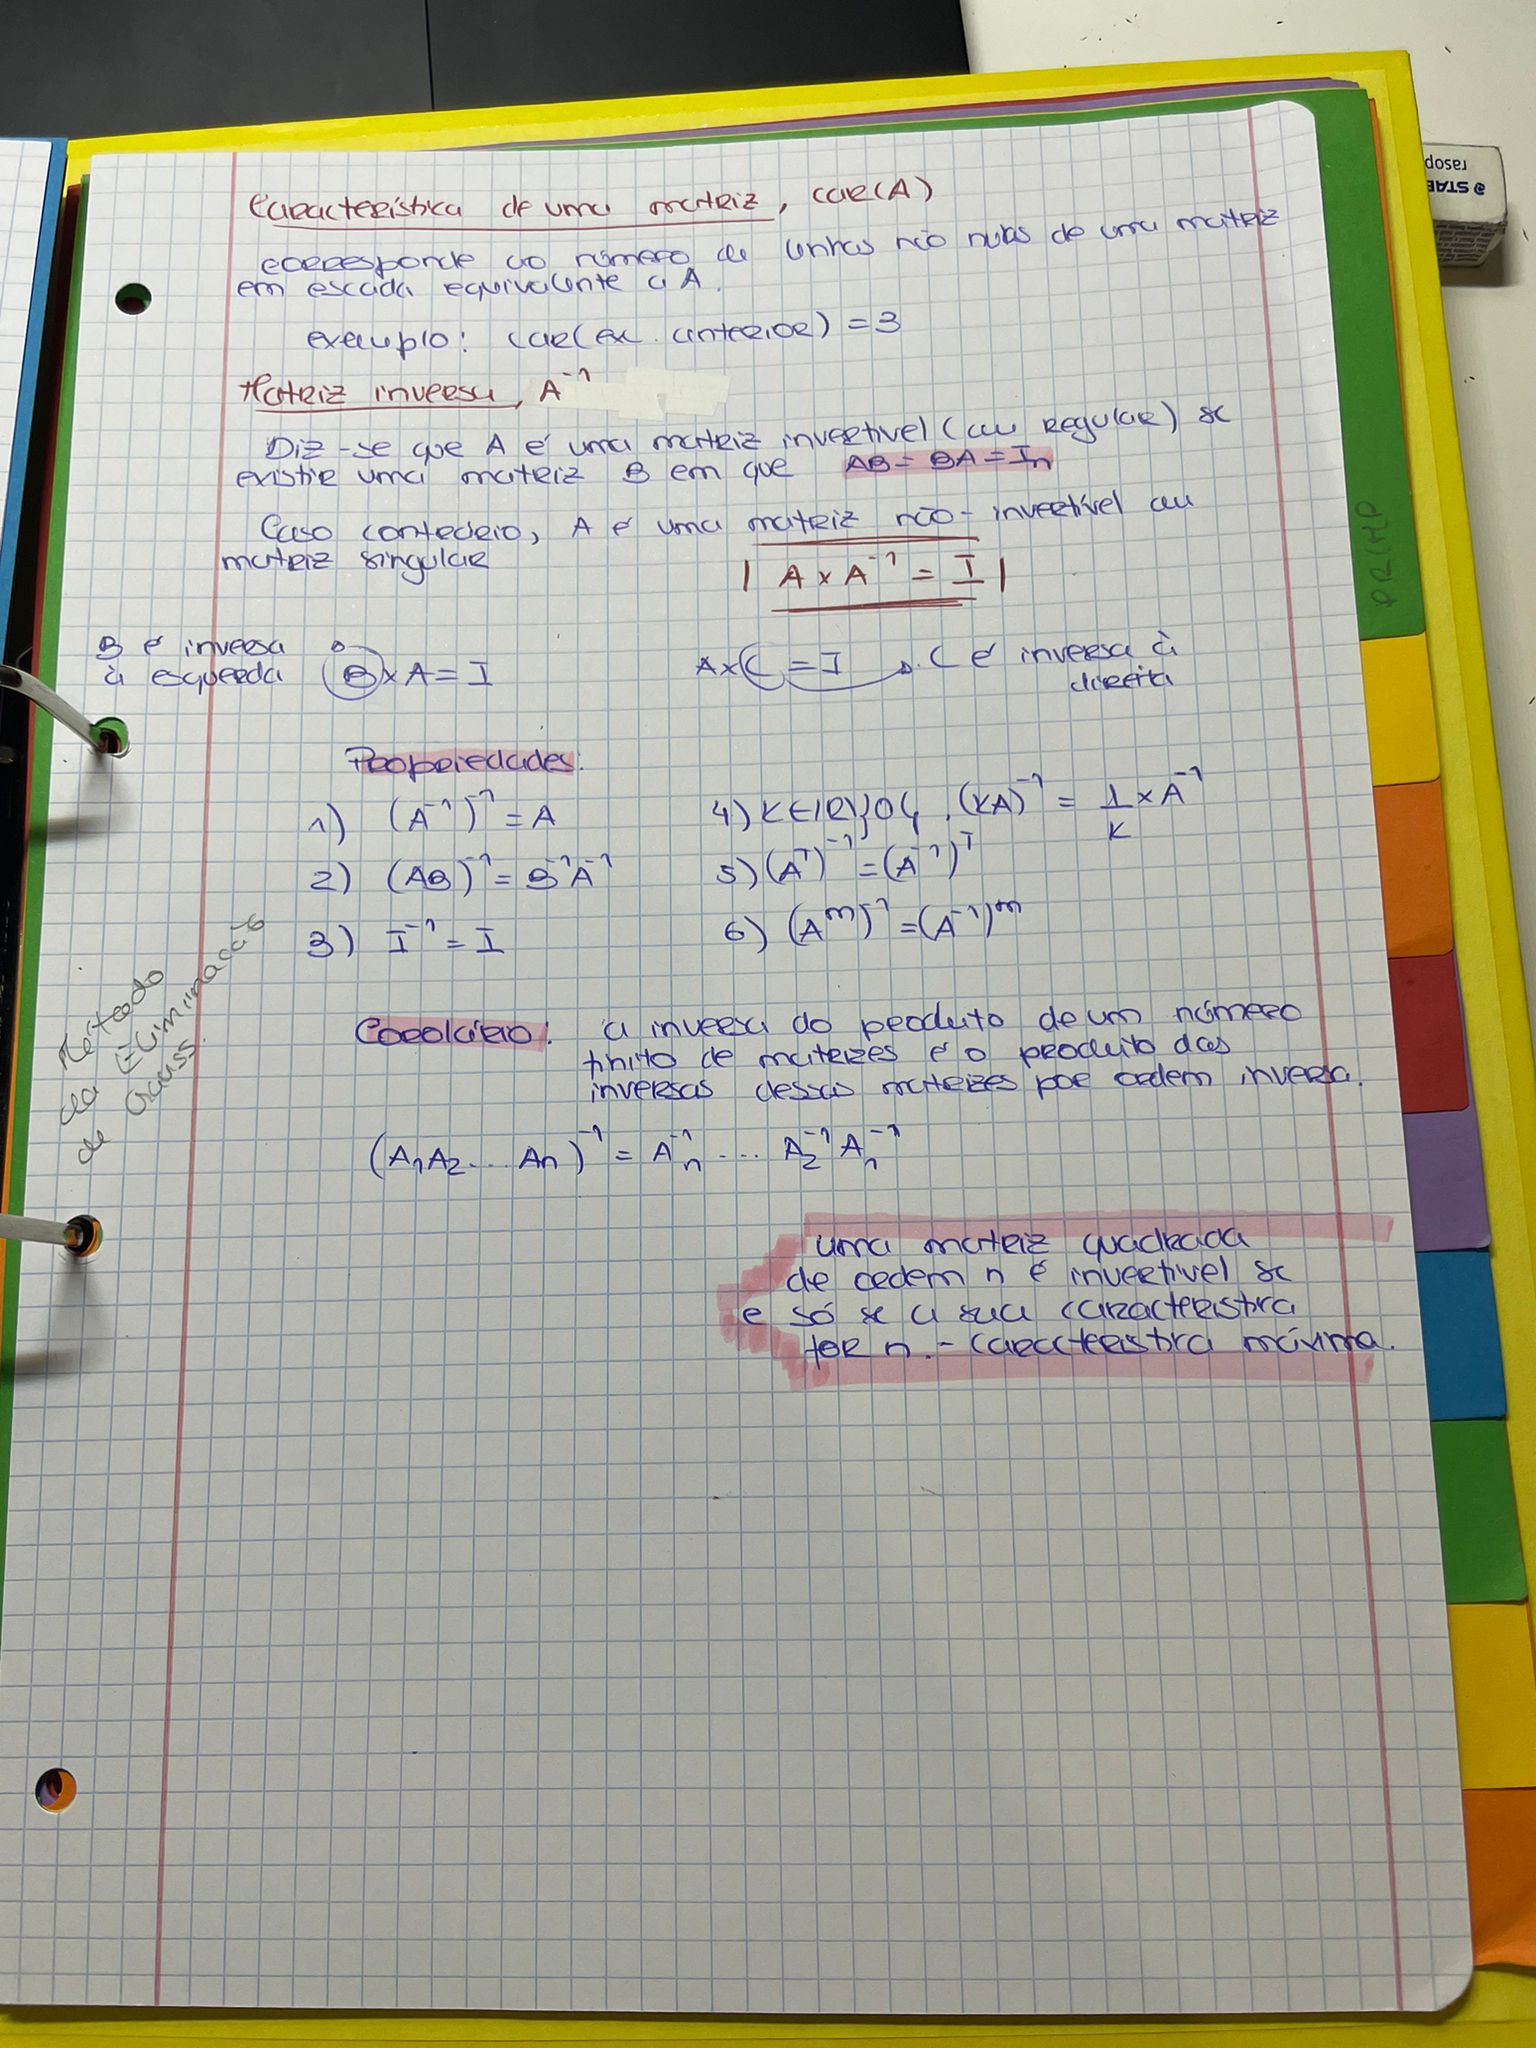 Característica de uma matriz, car(A)
corresponde ao número de linhas não nulas de uma matriz
em escada equivalente a A.
exemplo: car(ex. anterior) = 3
Matriz inversa, A⁻¹
Diz-se que A é uma matriz invertível (ou regular) se
existir uma matriz B em que AB = BA = Iₙ
Caso contrário, A é uma matriz não-invertível ou
matriz singular
| A × A⁻¹ = I |
B é inversa
à esquerda
B × A = I
A × C = I → C é inversa à
direita
Propriedades:
1) (A⁻¹)⁻¹ = A
2) (AB)⁻¹ = B⁻¹A⁻¹
3) I⁻¹ = I
4) K∈IR\{0}, (KA)⁻¹ = 1/K × A⁻¹
5) (Aᵀ)⁻¹ = (A⁻¹)ᵀ
6) (Aᵐ)⁻¹ = (A⁻¹)ᵐ
Método
da Eliminação
de Gauss.
Corolário: a inversa do produto de um número
finito de matrizes é o produto das
inversas dessas matrizes por ordem inversa.
(A₁A₂... Aₙ)⁻¹ = Aₙ⁻¹ ... A₂⁻¹ A₁⁻¹
uma matriz quadrada
de ordem n é invertível se
e só se a sua característica
for n. - característica máxima.
STAE
rasop